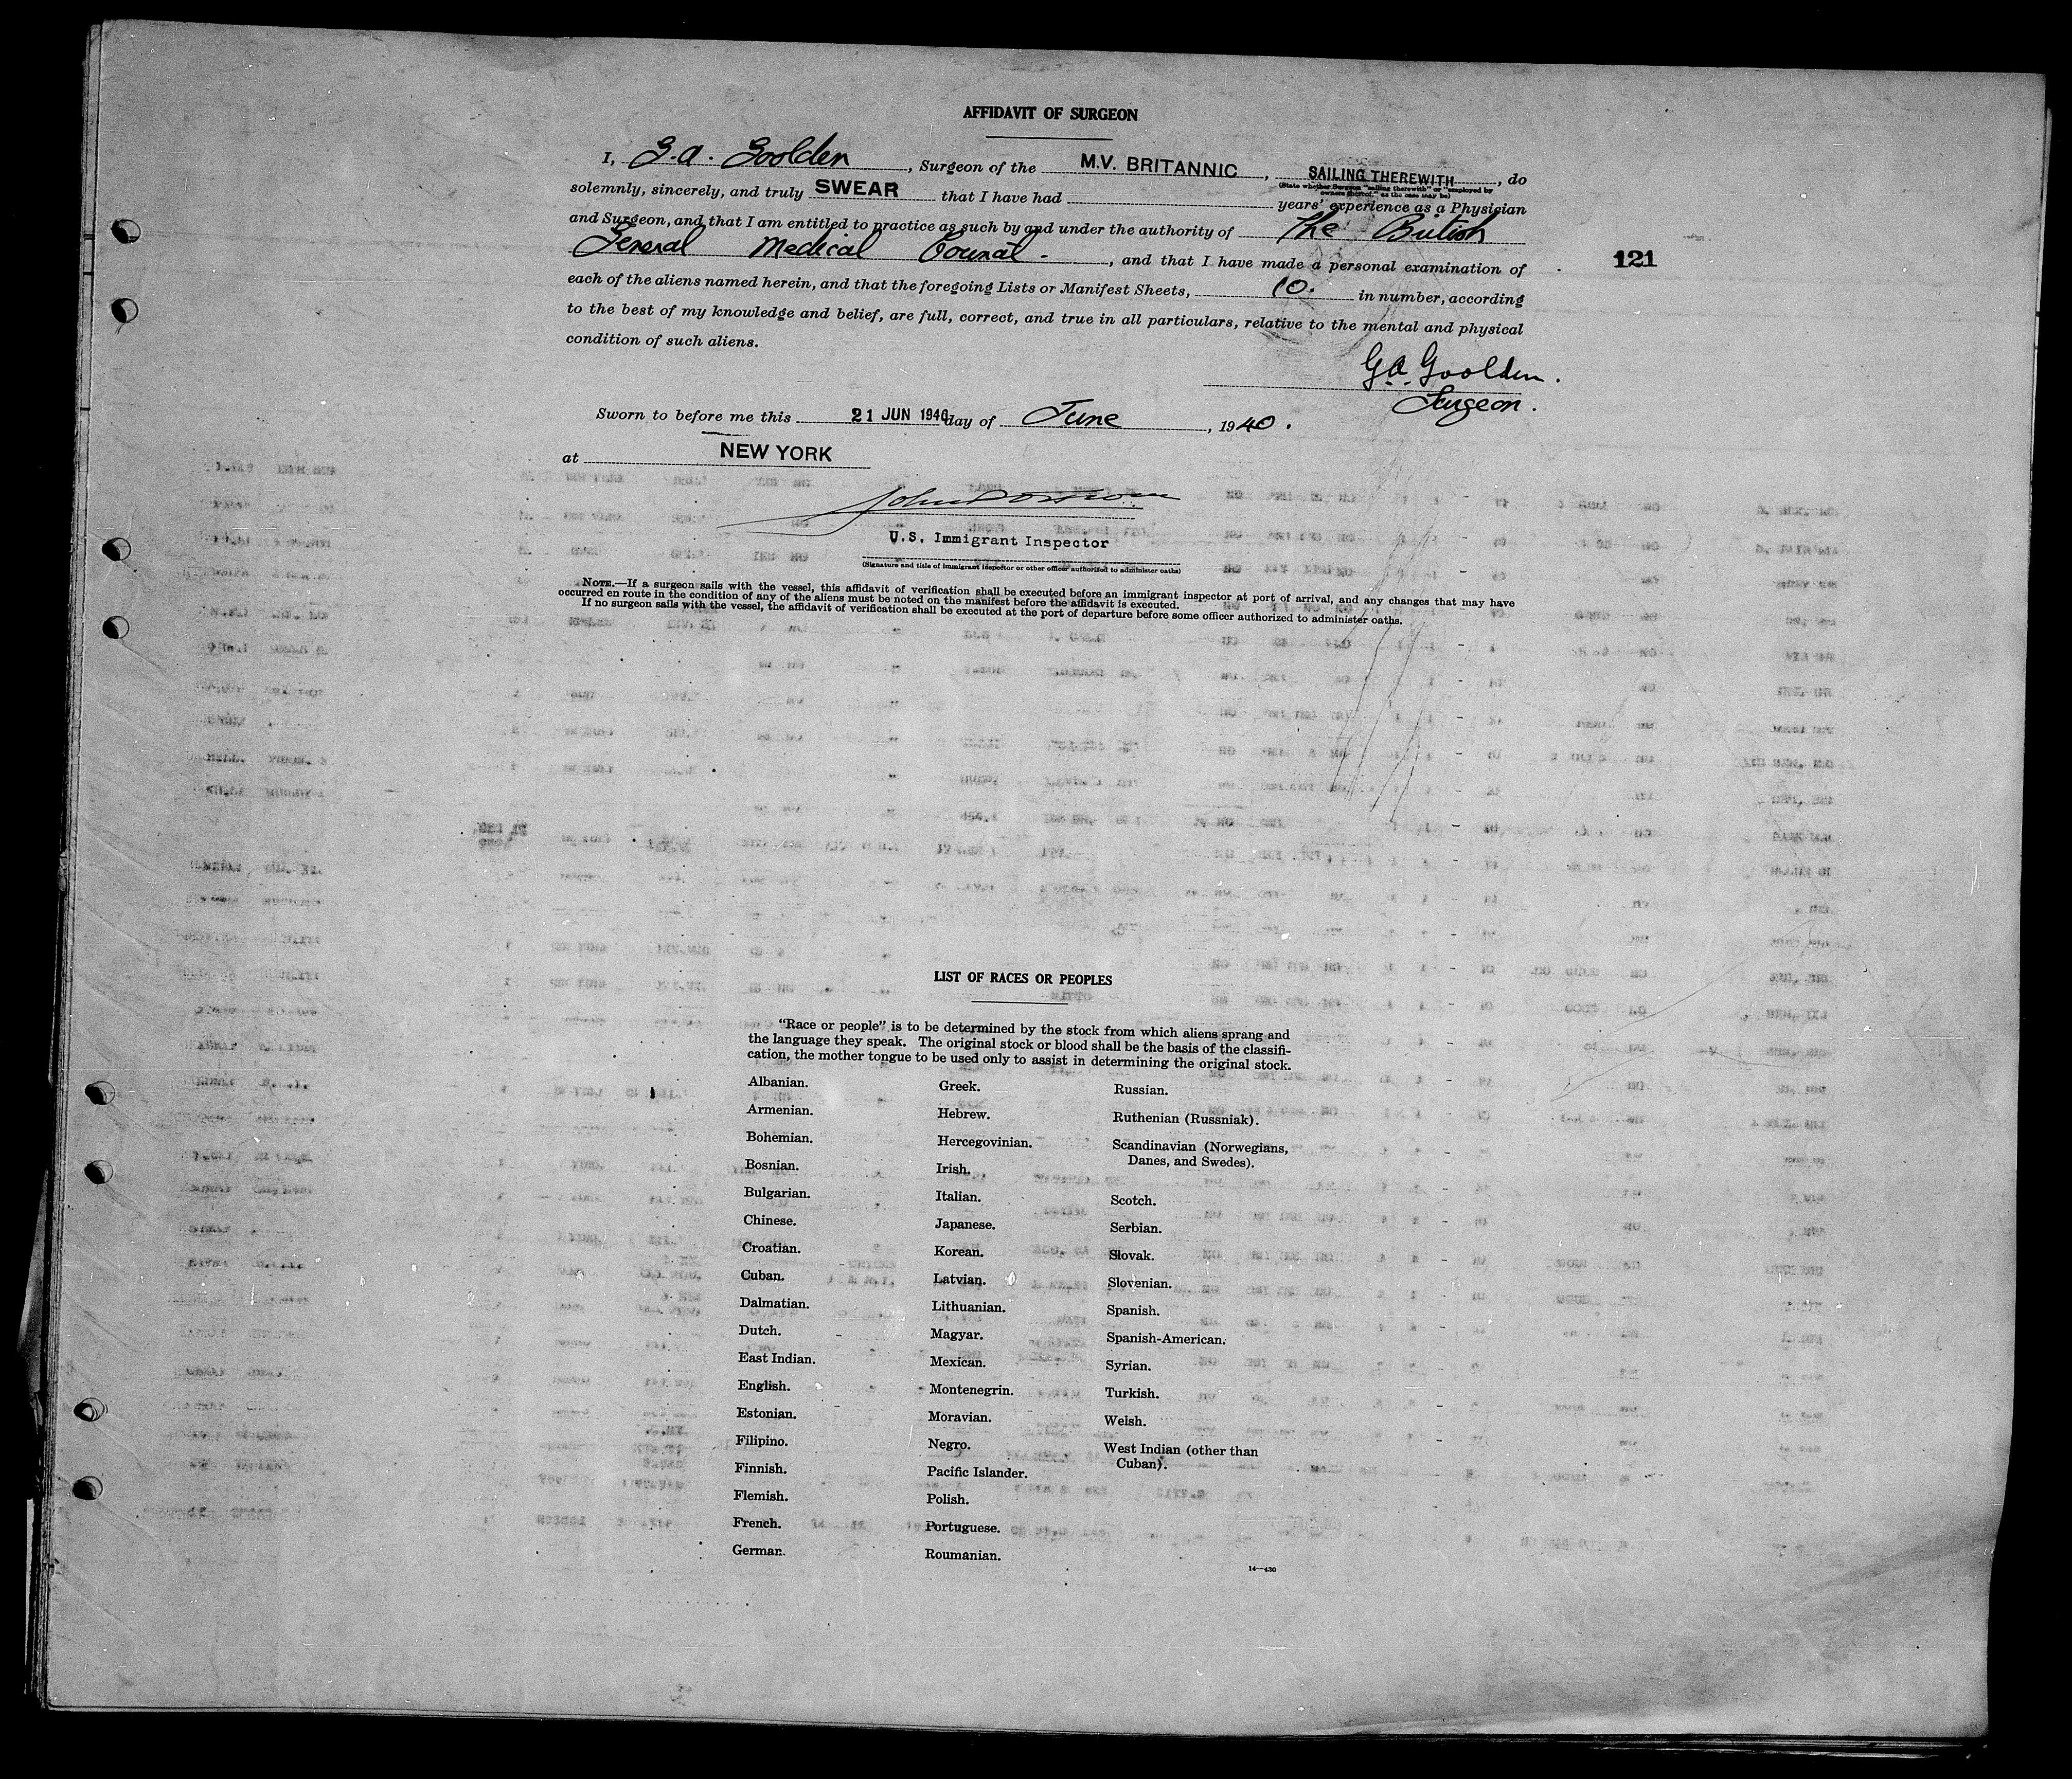 AFFIDAVIT OF SURGEON
I, G.A. Goolden, Surgeon of the M.V. BRITANNIC, SAILING THEREWITH, do
(State whether Surgeon "sailing therewith" or "employed by
owners thereof," as the case may be)
solemnly, sincerely, and truly SWEAR that I have had years' experience as a Physician
and Surgeon, and that I am entitled to practice as such by and under the authority of The British
General Medical Council-, and that I have made a personal examination of
121
each of the aliens named herein, and that the foregoing Lists or Manifest Sheets, 10. in number, according
to the best of my knowledge and belief, are full, correct, and true in all particulars, relative to the mental and physical
condition of such aliens.
G.A. Goolden.
Surgeon.
Sworn to before me this 21 JUN 1940 day of June, 1940.
at NEW YORK
U.S. Immigrant Inspector
(Signature and title of immigrant inspector or other officer authorized to administer oaths)
NOTE.—If a surgeon sails with the vessel, this affidavit of verification shall be executed before an immigrant inspector at port of arrival, and any changes that may have
occurred en route in the condition of any of the aliens must be noted on the manifest before the affidavit is executed.
If no surgeon sails with the vessel, the affidavit of verification shall be executed at the port of departure before some officer authorized to administer oaths.
LIST OF RACES OR PEOPLES
"Race or people" is to be determined by the stock from which aliens sprang and
the language they speak. The original stock or blood shall be the basis of the classifi-
cation, the mother tongue to be used only to assist in determining the original stock.
Albanian.
Armenian.
Bohemian.
Bosnian.
Bulgarian.
Chinese.
Croatian.
Cuban.
Dalmatian.
Dutch.
East Indian.
English.
Estonian.
Filipino.
Finnish.
Flemish.
French.
German.
Greek.
Hebrew.
Hercegovinian.
Irish.
Italian.
Japanese.
Korean.
Latvian.
Lithuanian.
Magyar.
Mexican.
Montenegrin.
Moravian.
Negro.
Pacific Islander.
Polish.
Portuguese.
Roumanian.
Russian.
Ruthenian (Russniak).
Scandinavian (Norwegians,
Danes, and Swedes).
Scotch.
Serbian.
Slovak.
Slovenian.
Spanish.
Spanish-American.
Syrian.
Turkish.
Welsh.
West Indian (other than
Cuban).
14—430